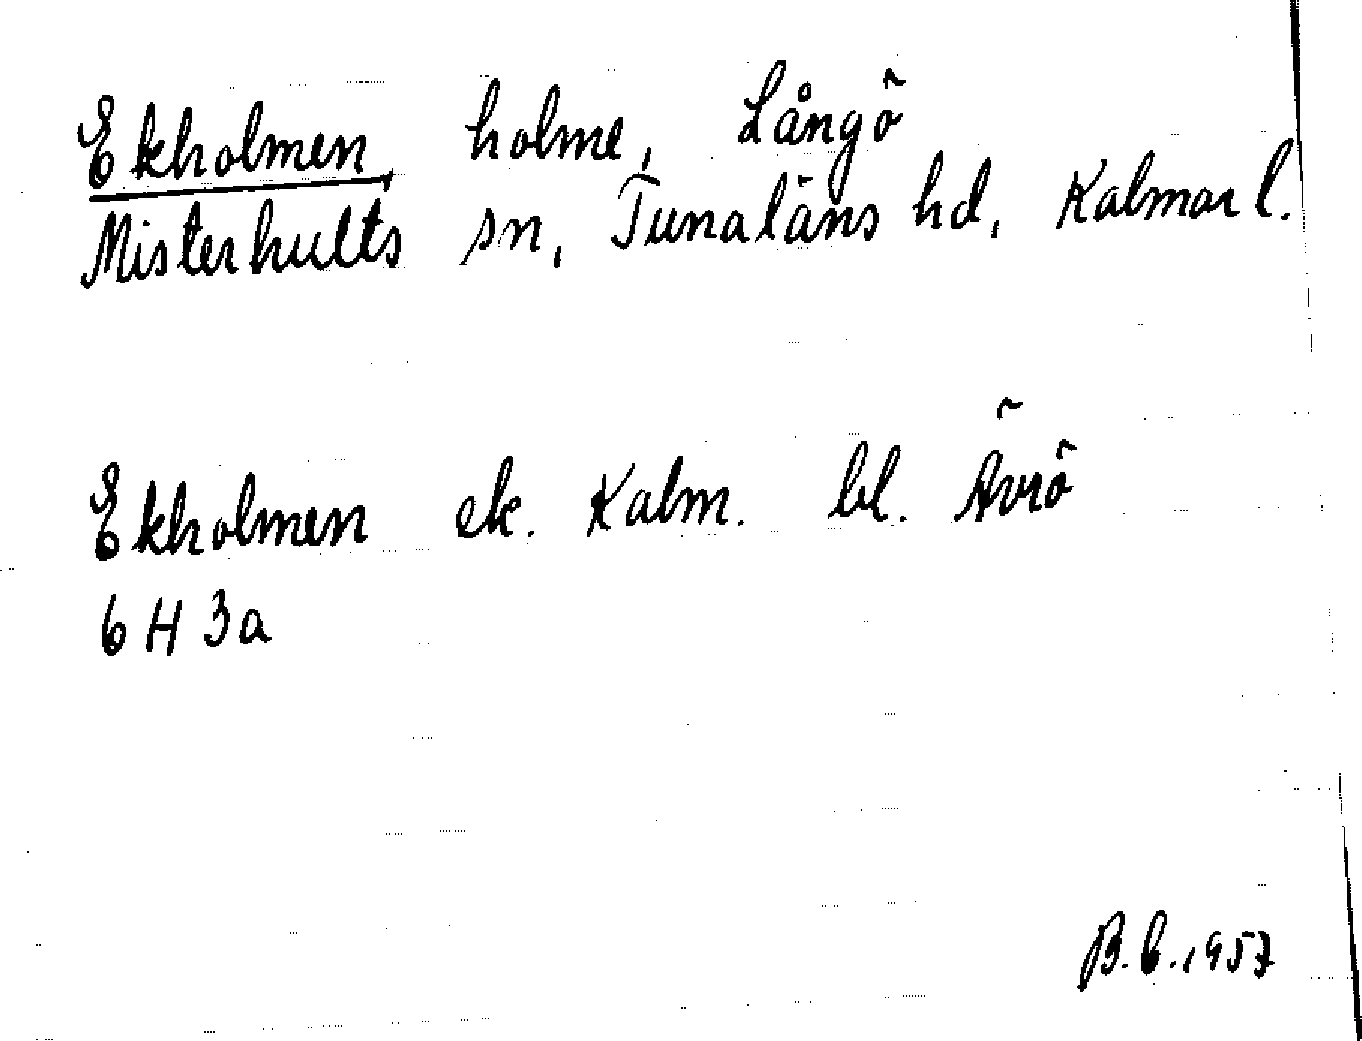 Ekholmen, holme, Långö
Misterhults sn, Tunaläns hd, Kalmar l.
Ekholmen ek. Kalm. bl. Ävrö
6 H 3a
B.G.1957